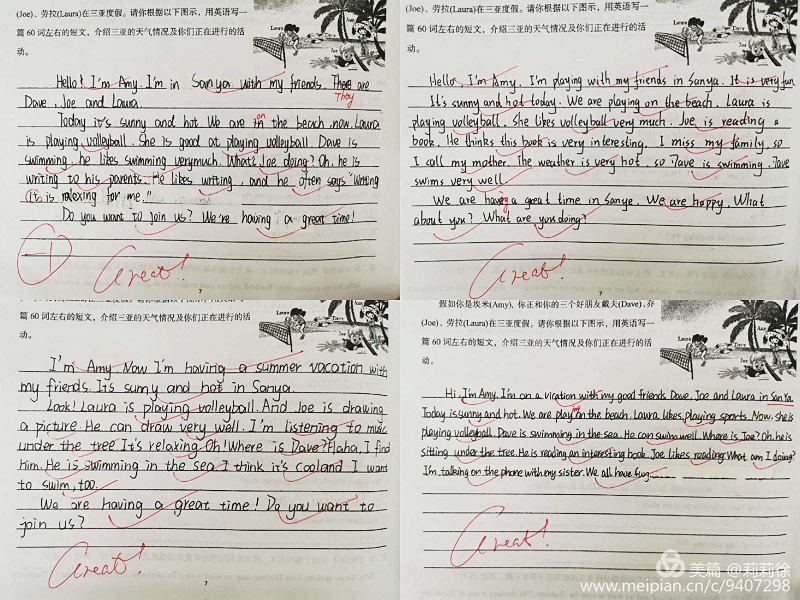 (Joe)、劳拉(Laura)在三亚度假。请你根据以下图示，用英语写一
篇 60 词左右的短文，介绍三亚的天气情况及你们正在进行的活
动。
Laura
Dave
Joe
Hello! I'm Amy. I'm in Sanya with my friends. There are
They
Dave, Joe and Laura.
Today it's sunny and hot We are in the beach now. Laura
on
is playing volleyball. She is good at playing volleyball. Dave is
swimming. he likes swimming verymuch. What's Joe doing? Oh, he is
writing to his parents. He likes writing, and he often says "Writing
it is relexing for me."
Do you want to join us? We're having a great time!
Great!
7
(Joe)、劳拉(Laura)在三亚度假。请你根据以下图示，用英语写一
篇 60 词左右的短文，介绍三亚的天气情况及你们正在进行的活
动。
Laura
Dave
Joe
Hello, I'm Amy. I'm playing with my friends in Sanya. It is very fun.
It's sunny and hot today. We are playing on the beach. Laura is
playing volleyball. She likes volleyball very much. Joe is reading a
book. He thinks this book is very interesting. I miss my family, so
I call my mother. The weather is very hot, so Dave is swimming. Dave
swims very well.
We are having a great time in Sanye. We are happy. What
about you? What are you doing?
Great!
7
篇 60 词左右的短文，介绍三亚的天气情况及你们正在进行的活
动。
Laura
Dave
Joe
I'm Amy Now I'm having a summer vacation with
my friends. It's sunny and hot in Sanya.
Look! Laura is playing volleyball. And Joe is drawing
a picture. He can draw very well. I'm listening to music
under the tree It's relaxing. Oh! Where is Dave? Haha, I find
him. He is swimming in the sea. I think it's cooland I want
to swim, too.
We are having a great time! Do you want to
join us?
Great!
7
假如你是埃米(Amy), 你正和你的三个好朋友戴夫(Dave)、乔
(Joe)、劳拉(Laura)在三亚度假。请你根据以下图示，用英语写一
篇 60 词左右的短文，介绍三亚的天气情况及你们正在进行的活
动。
Laura
Dave
Joe
Hi, I'm Amy. I'm on a vication with my good friends Dave, Joe and Laura in SanYa.
Today is sunny and hot. We are play on the beach. Laura likes playing sports. Now, she is
ing
playing volleyball. Dave is swimming in the sea. He can swim well. Where is Joe? Oh, he is
sitting under the tree. He is reading an interesting book. Joe likes reading. What am I doing?
I'm talking on the phone with my sister. We all have fun.
Great!
美篇 @莉莉徐
www.meipian.cn/c/9407298